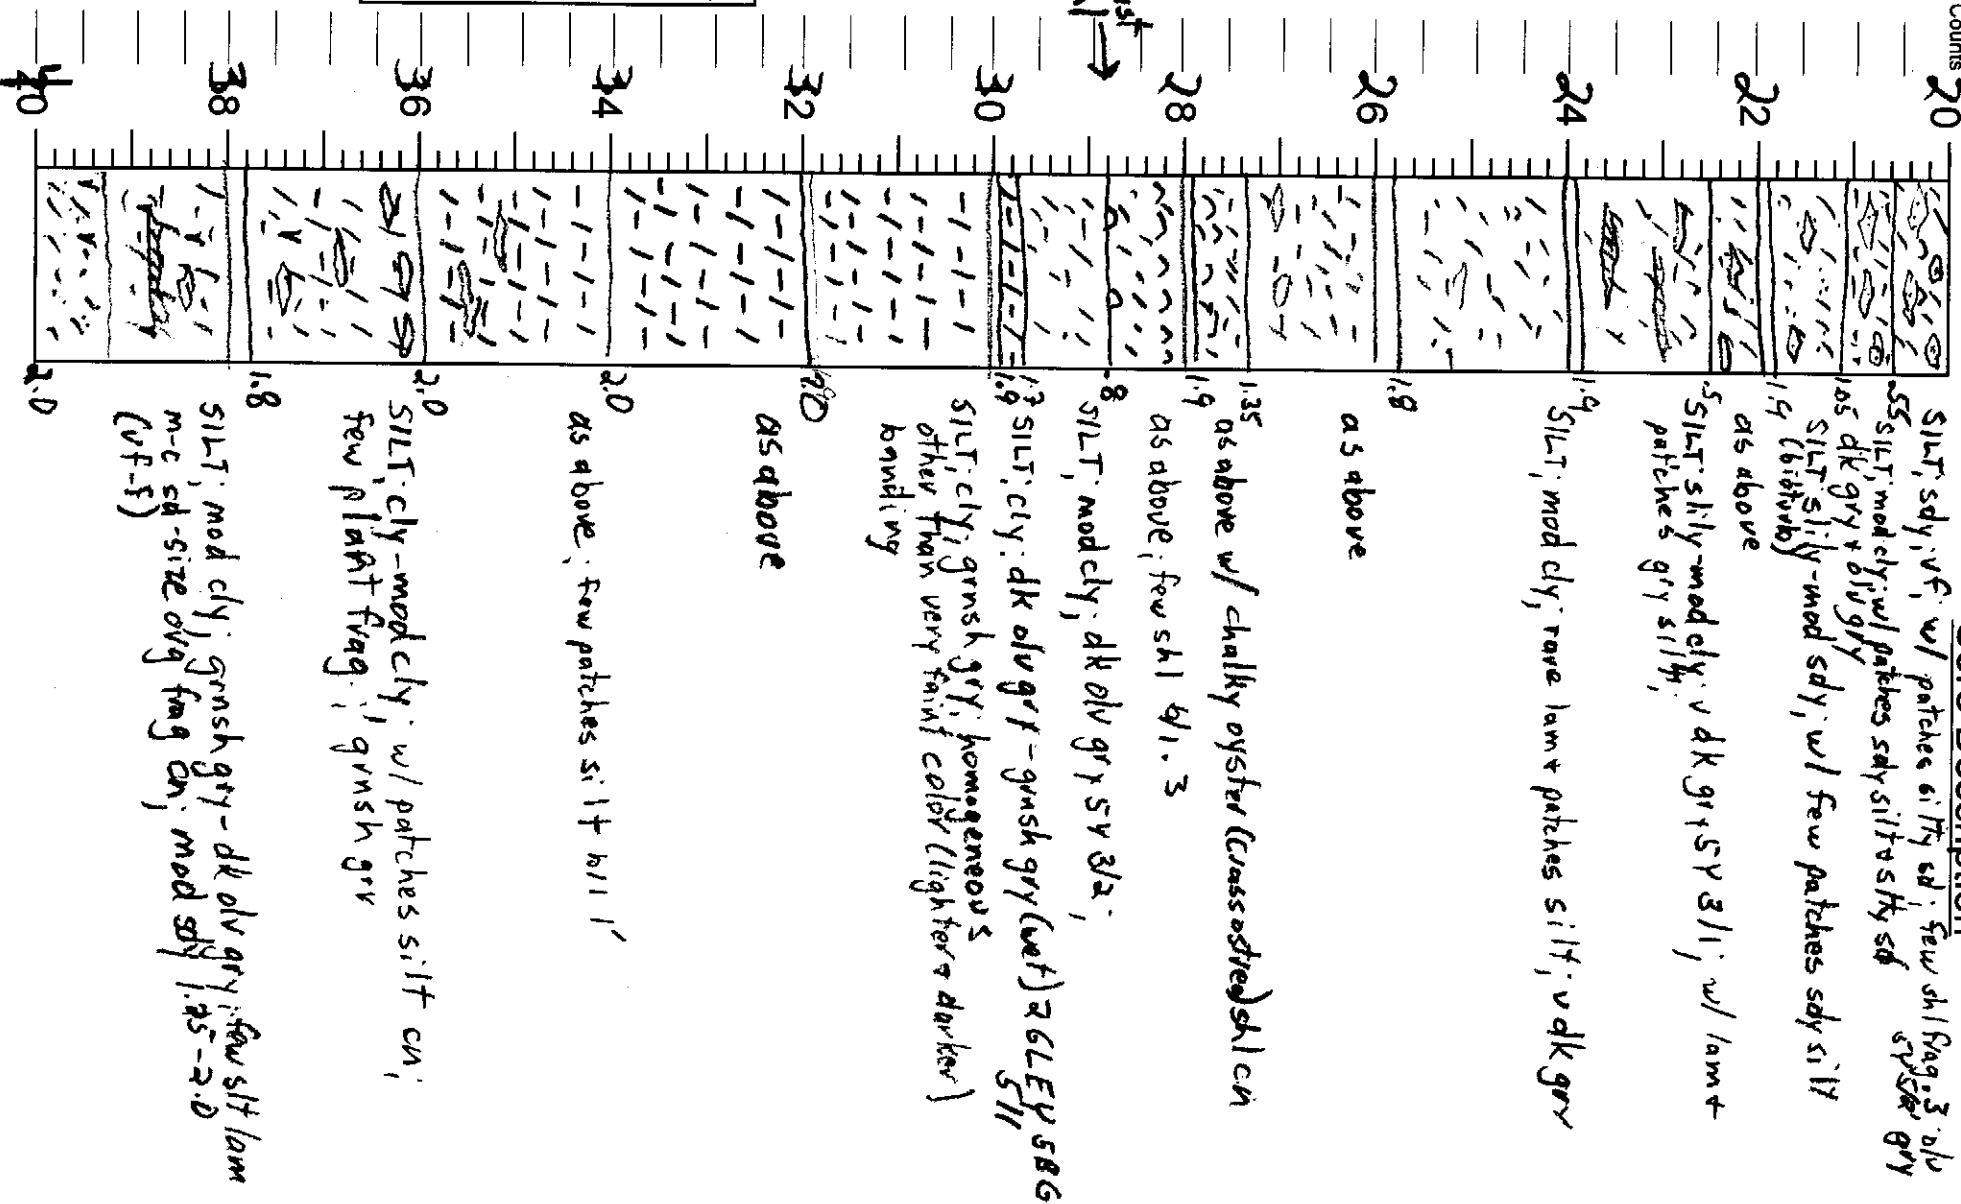 Counts
20
22
24
26
28
30
32
34
36
38
40
SILT, sdy, vf; w/ patches silty sd; few shl frag. .3 olv gry
.55 SILT, mod cly, w/ patches sdy silt & slty sd
1.05 dk gry & olv gry
SILT slily-mod sdy; w/ few patches sdy silt
1.9 (bioturb)
as above
.5 SILT slily-mod cly; v dk gry 5Y 3/1; w/ lam &
patches gry silt;
1.9 SILT, mod cly; rare lam & patches silt; v dk gry
1.8
as above
1.35
as above w/ chalky oyster (Crassostrea) shl cn
1.9
as above; few shl b/1.3
.8
SILT, mod cly; dk olv gry 5Y 3/2;
1.7 SILT, cly; dk olv gry - grnsh gry (wet) 2 GLEY 5BG
5/1
1.9
SILT, cly, grnsh gry; homogeneous
other than very faint color (lighter & darker)
banding
as above
2.0
as above; few patches silt b/1 1'
2.0
SILT, cly-mod cly; w/ patches silt cn;
few plant frag.; grnsh gry
1.8
SILT, mod cly; grnsh gry - dk olv gry; few slt lam
m-c sd-size org frag cn; mod sdy 1.25-2.0
(vf-f)
2.0